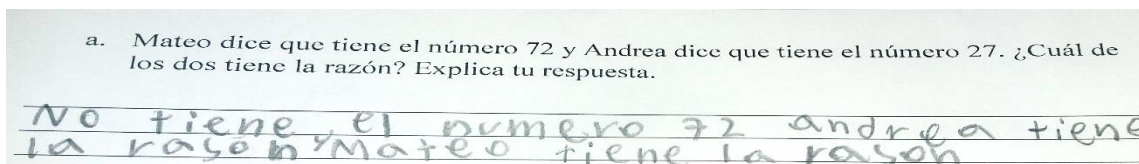 a. Mateo dice que tiene el número 72 y Andrea dice que tiene el número 27. ¿Cuál de
los dos tiene la razón? Explica tu respuesta.
No tiene el numero 72 andrea tiene
la rason y Mateo tiene la rason